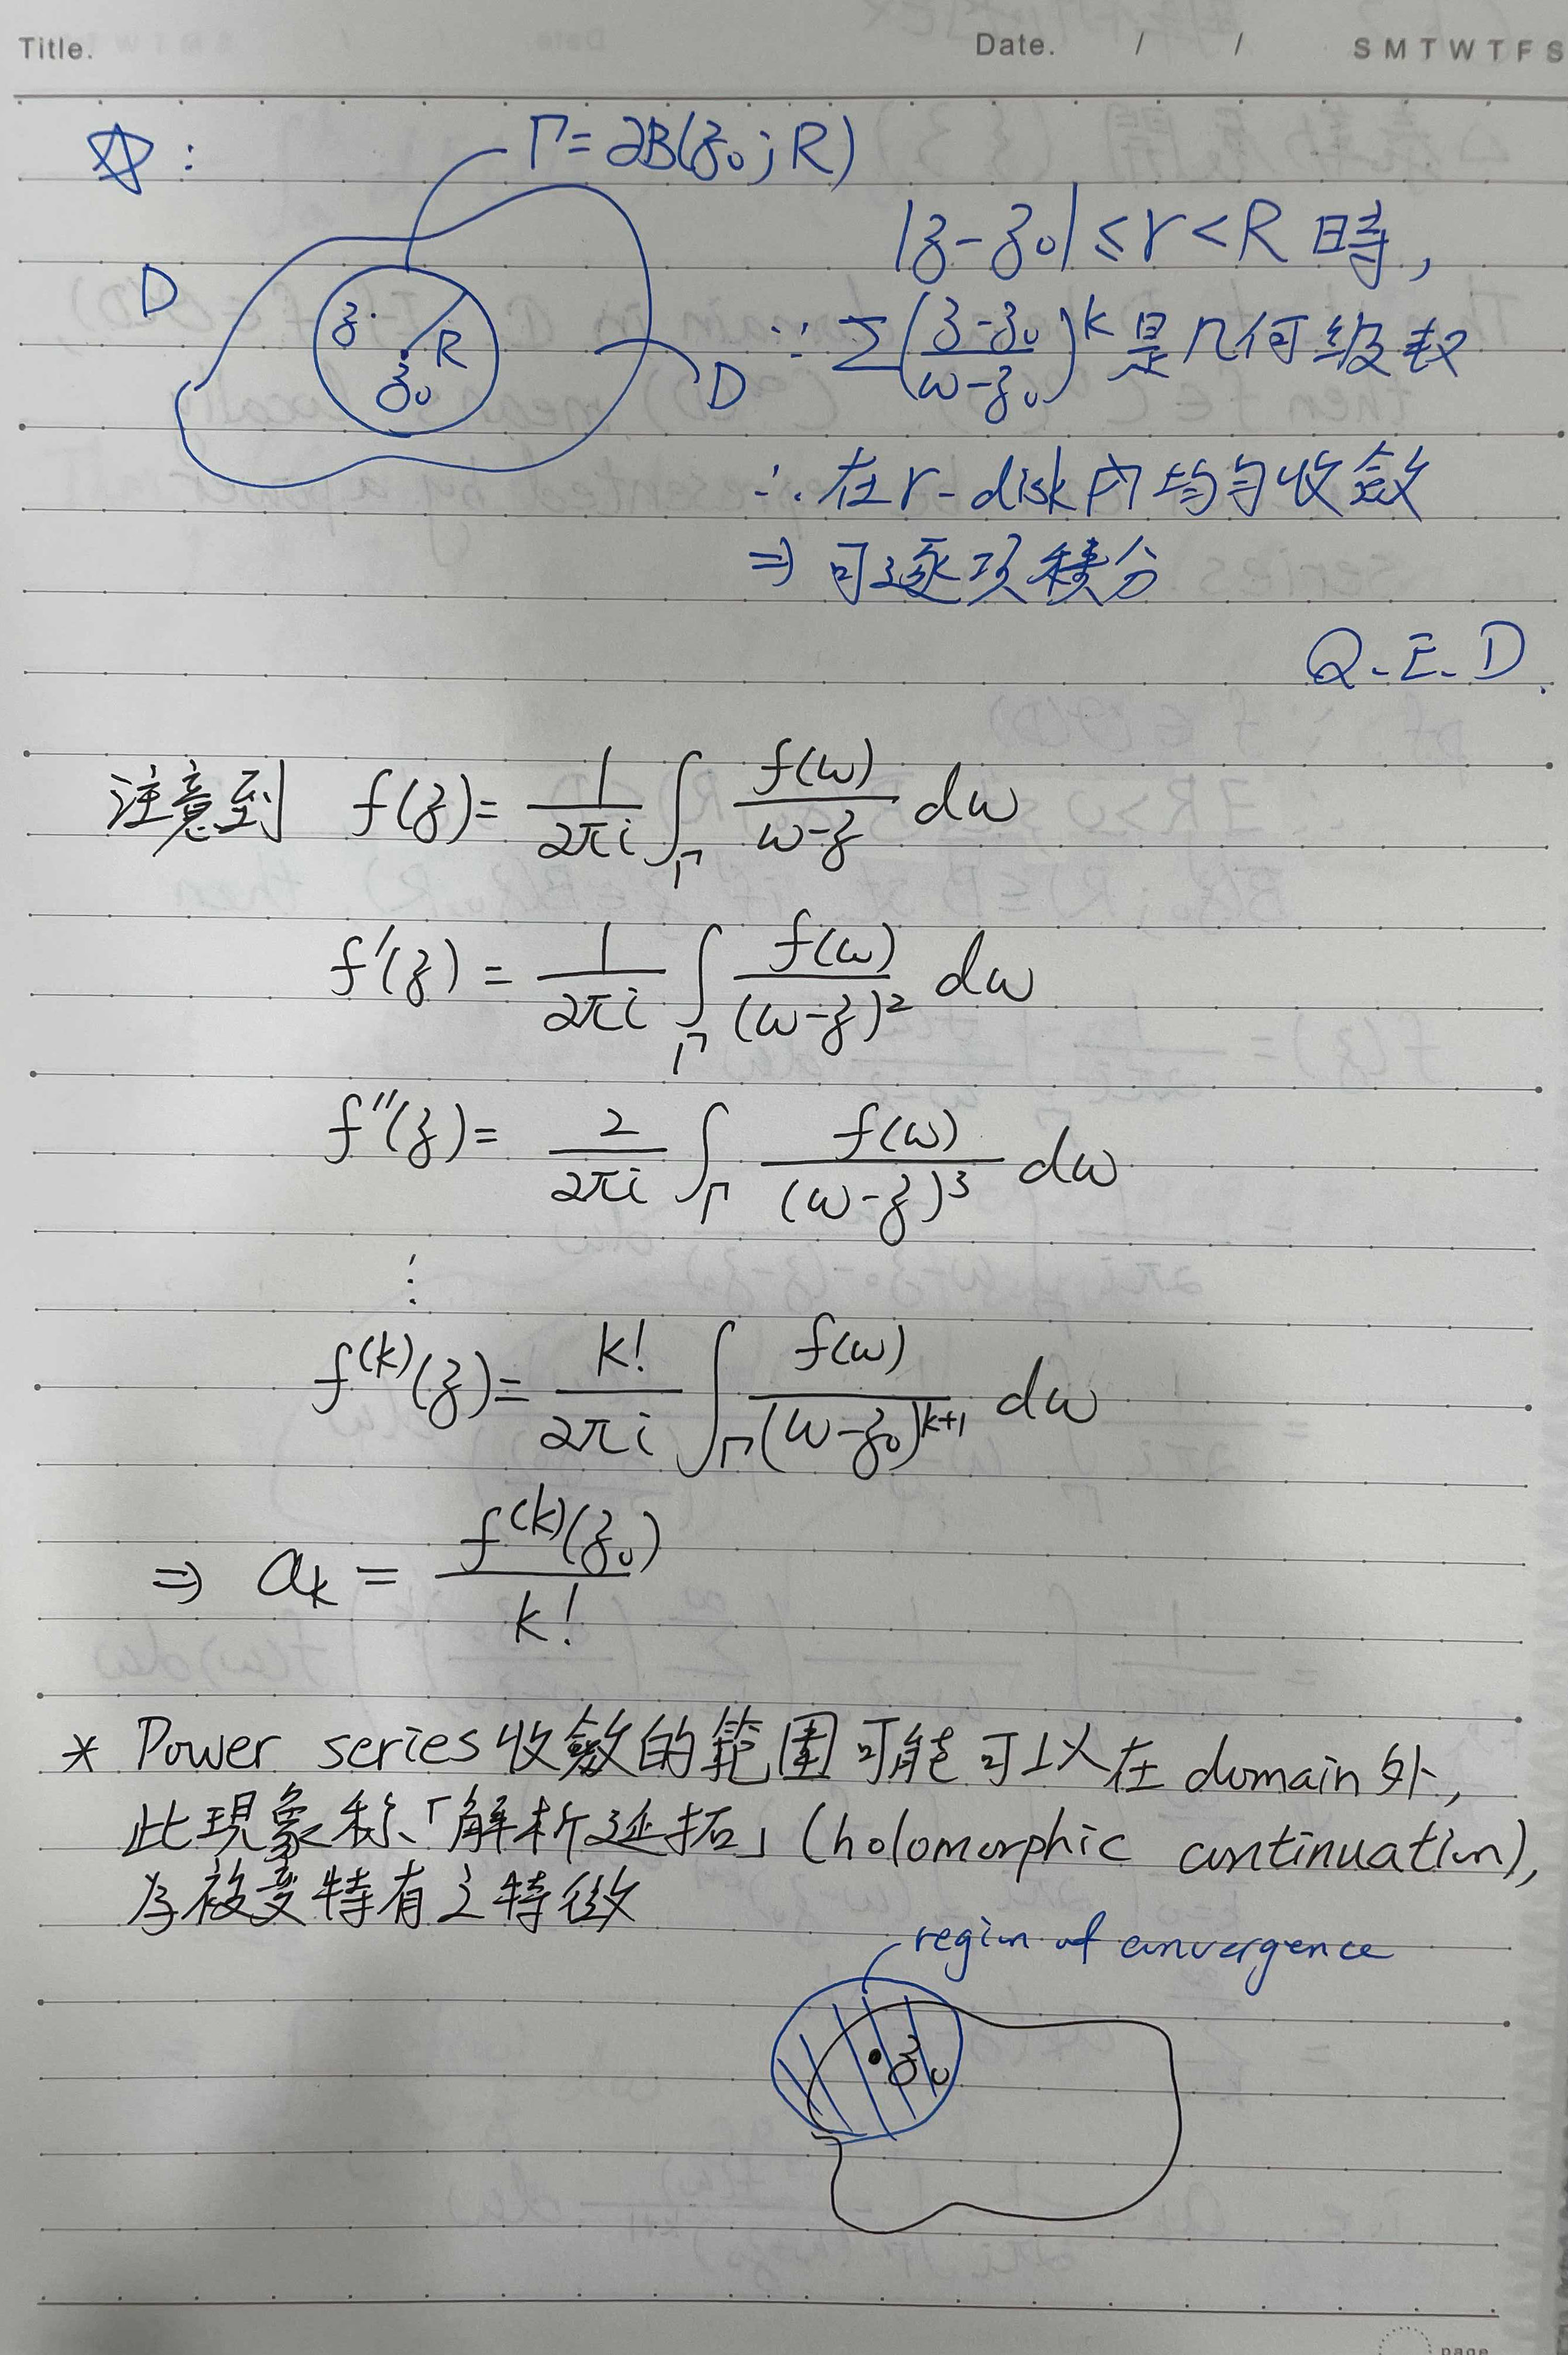 Title.
Date. / / S M T W T F S
☆:
Γ = ∂B(z₀; R)
D
z
R
z₀
D
|z-z₀| ≤ r < R 時,
∵ Σ((z-z₀)/(ω-z₀))^k 是几何级数
∴ 在 r-disk 内均匀收斂
⇒ 可逐项積分
Q.E.D.
注意到 f(z) = 1/(2πi) ∫_Γ f(ω)/(ω-z) dω
f'(z) = 1/(2πi) ∫_Γ f(ω)/(ω-z)² dω
f''(z) = 2/(2πi) ∫_Γ f(ω)/(ω-z)³ dω
⋮
f^(k)(z) = k!/(2πi) ∫_Γ f(ω)/(ω-z₀)^(k+1) dω
⇒ a_k = f^(k)(z₀)/k!
* Power series 收斂的範圍可能可以在 domain 外,
此現象称「解析延拓」(holomorphic continuation),
为複变特有之特徵
region of convergence
z₀
page